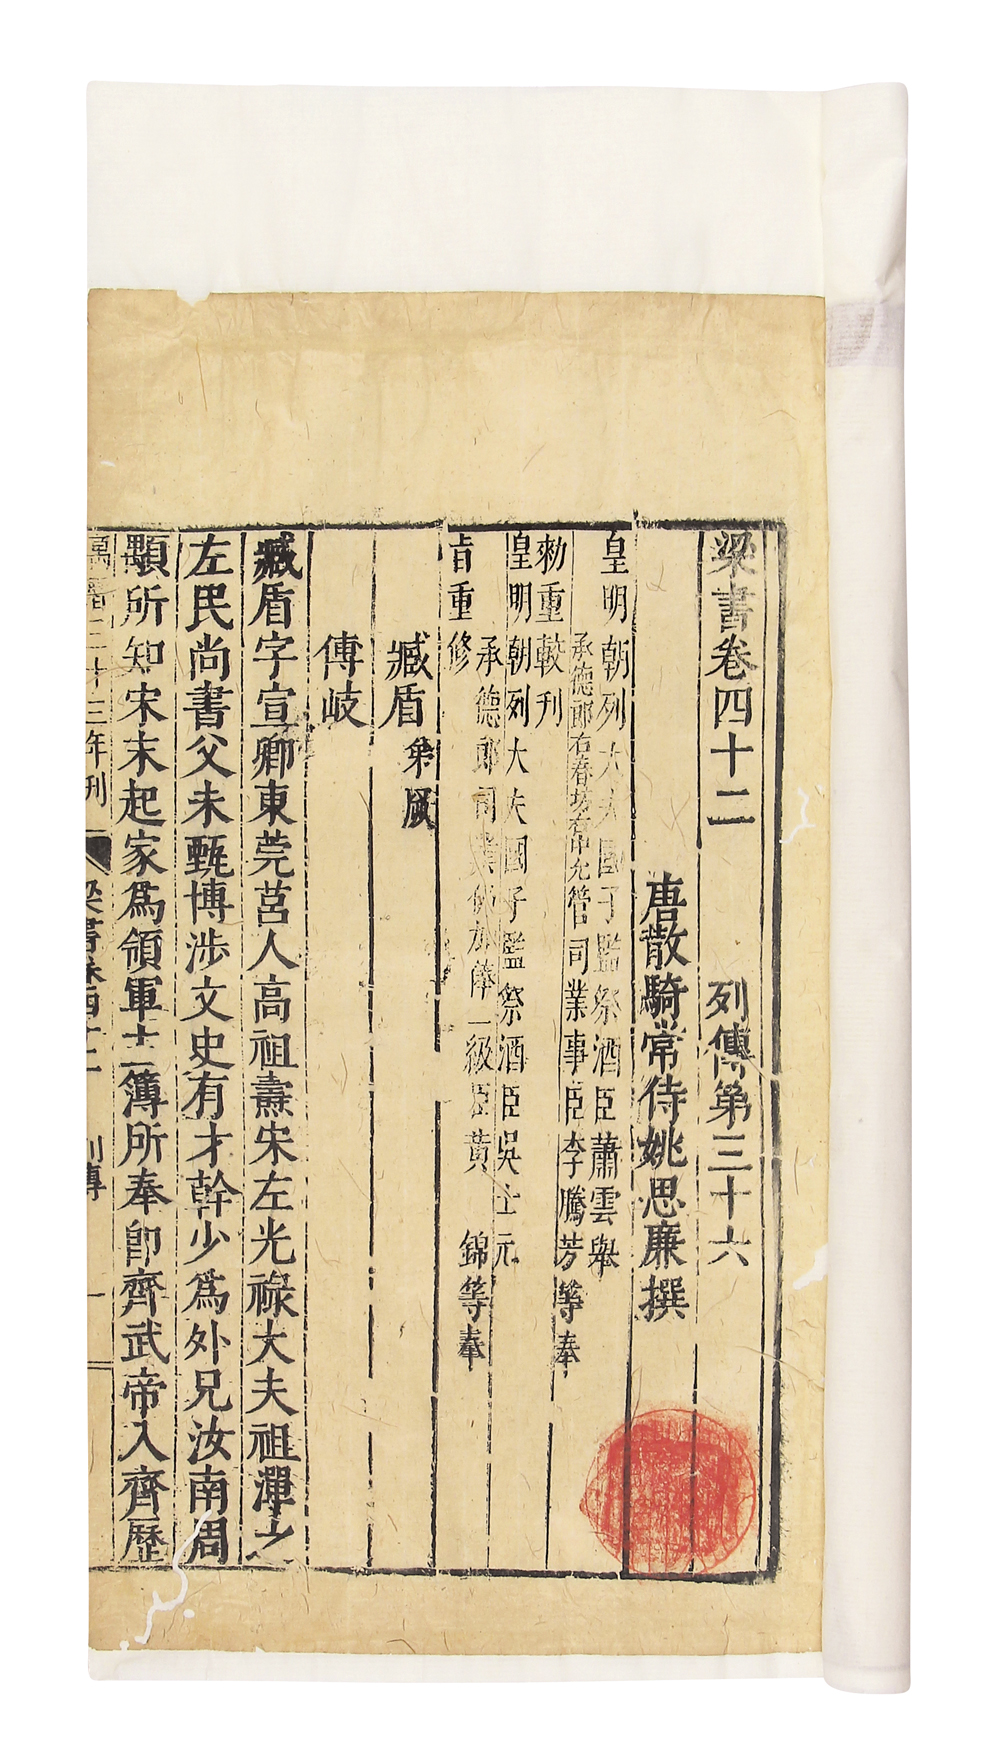 梁書卷四十二 列傳第三十六
唐散騎常侍姚思廉撰
皇明朝列大夫國子監祭酒臣蕭雲舉
承德郎右春坊右中允管司業事臣李騰芳等奉
勑重較刊
皇明朝列大夫國子監祭酒臣吳士元
承德郎司業仍加俸一級臣黃錦等奉
旨重修
臧盾 弟厥
傅岐
臧盾字宣卿東莞莒人高祖燾宋左光祿大夫祖潭之
左民尚書父未甄博涉文史有才幹少爲外兄汝南周
顒所知宋末起家爲領軍主簿所奉卽齊武帝入齊歷
萬曆三十三年刊 梁書卷四十二 列傳 一